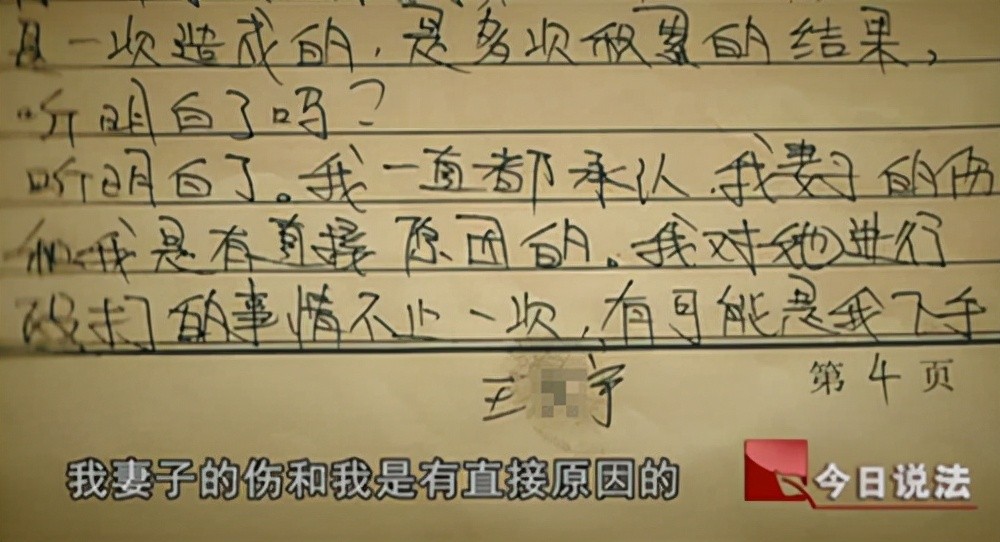 一次造成的，是多次微累的结果，
听明白了吗？
听明白了。我一直都承认，我妻子的伤
和我是有直接原因的。我对她进行
殴打的事情不止一次，有可能是我下手
王 宇
第 4 页
我妻子的伤和我是有直接原因的
今日说法